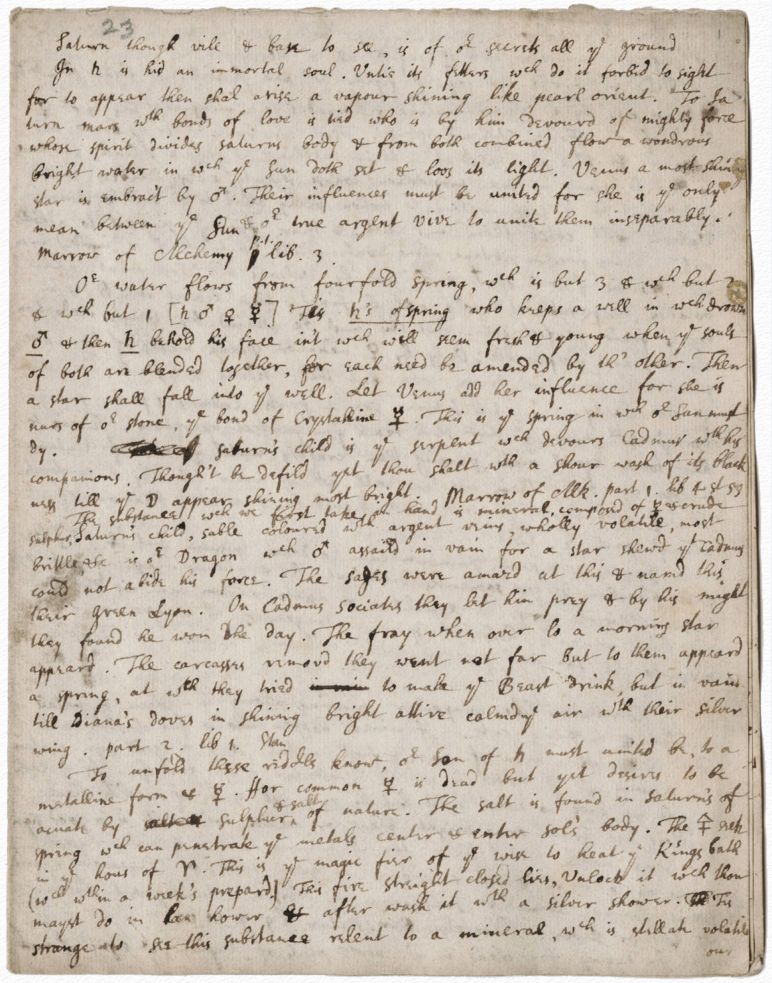 23
Saturn though vile & base to see, is of oʳ secrets all yᵉ ground
In ♄ is hid an immortal soul. Untie its fetters wᶜʰ do it forbid to sight
for to appear then shal arise a vapour shining like pearl orient. To Sa
turn mars wᵗʰ bonds of love is tied who is by him devourd of mighty force
whose spirit divides saturns body & from both combined flow a wondrous
bright water in wᶜʰ yᵉ Sun doth set & loos its light. Venus a most shining
star is embract by ♂. Their influences must be united for she is yᵉ only
mean between yᵉ Sun & oʳ true argent vive to unite them inseparably.
Marrow of Alchemy lib. 3.
Oʳ water flows from fourfold spring, wᶜʰ is but 3 & wᶜʰ but 2
& wᶜʰ but 1 [♄ ♂ ♀ ☿] Tis ♄'s ofspring who keeps a well in wᶜʰ drown
♂ & then ♄ behold his face in't wᶜʰ will seem fresh & young when yᵉ souls
of both are blended together, for each need be amended by th' other. Then
a star shall fall into yᵉ well. Let Venus add her influence for she is
nurs of oʳ stone, yᵉ bond of Crystalline ☿. This is yᵉ spring in wᶜʰ oʳ Sun must
dy. Saturn's child is yᵉ serpent wᶜʰ devours Cadmus wᵗʰ his
companions. Though't be defild yet thou shalt wᵗʰ a shour wash of its black
ness till yᵉ ☽ appear shining most bright. Marrow of Alk. part 1. lib 4 st 59
The substance wᶜʰ we first take in hand is mineral, composed of ☿ & crude
sulphur, Saturn's child, sable coloured wᵗʰ argent veins wholly volatile, most
brittle, &c is oʳ Dragon wᶜʰ ♂ assaild in vain for a star shewd yᵗ Cadmus
could not abide his force. The sages were amazd at this & namd this
their green Lyon. On Cadmus sociates they let him prey & by his might
they found he won the day. The fray when over lo a morning star
appeard. The carcasses removd they went not far but to them appeard
a spring, at wᶜʰ they tried to make yᵉ Beast drink, but in vain
till Diana's doves in shining bright attire calmd yᵉ air wᵗʰ their silver
wing. part 2. lib 1.
To unfold these riddles know, oʳ Son of ♄ must united be, to a
metalline form & ☿. ffor common ☿ is dead but yet desires to be
acuate by sulphur & salt of nature. The salt is found in saturn's of
spring wᶜʰ can penetrate yᵉ metals center & enter sol's body. The 🜍 seek
in yᵉ hous of ♈. This is yᵉ magic fier of yᵉ wise to heat yᵉ King's bath
(wᶜʰ wᵗʰin a week's prepard.) This fire streight closed lies, Unlock it wᶜʰ thou
mayst do in an hower & after wash it wᵗʰ a silver shower. Tis
strange to see this substance relent to a mineral, wᶜʰ is stellate volatile
our